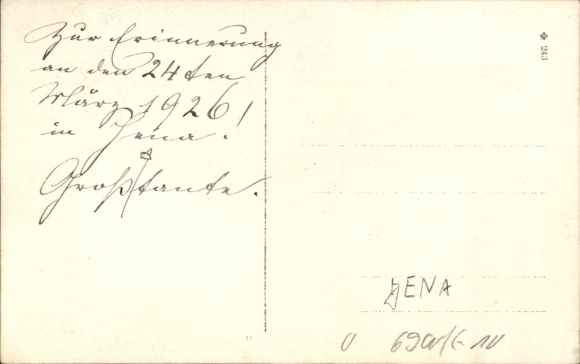 Zur Erinnerung
an den 24ten
März 1926!
in Jena.
Großtante.
243
JENA